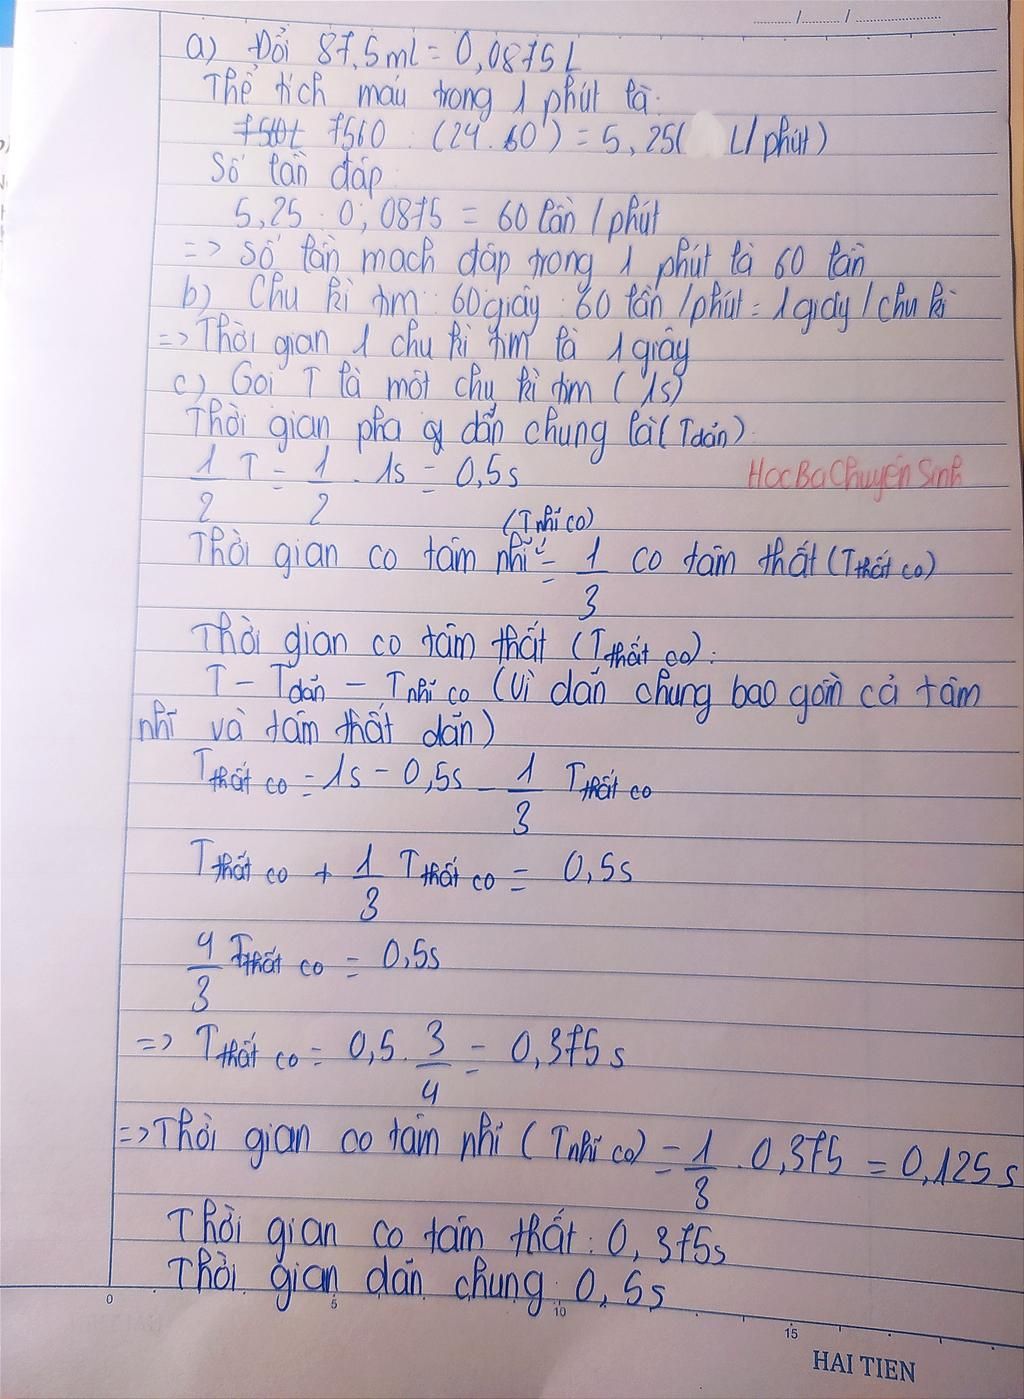 a) Đổi 87,5ml = 0,0875L
Thể tích máu trong 1 phút là:
7560 : (24.60) = 5,25( L/phút)
Số lần đập
5,25 : 0,0875 = 60 lần/phút
=> Số lần mạch đập trong 1 phút là 60 lần
b) Chu kì tim: 60giây : 60 lần/phút = 1giây/chu kì
=> Thời gian 1 chu kì tim là 1 giây
c) Gọi T là một chu kì tim (1s)
Thời gian pha dãn chung là (Tdãn)
1/2 T = 1/2 . 1s = 0,5s
HocBaChuyenSinh
(Tnhĩ co)
Thời gian co tâm nhĩ = 1/3 co tâm thất (Tthất co)
Thời gian co tâm thất (Tthất co):
T - Tdãn - Tnhĩ co (Vì dãn chung bao gồm cả tâm
nhĩ và tâm thất dãn)
Tthất co = 1s - 0,5s - 1/3 Tthất co
Tthất co + 1/3 Tthất co = 0,5s
4/3 Tthất co = 0,5s
=> Tthất co = 0,5 . 3/4 = 0,375 s
=> Thời gian co tâm nhĩ (Tnhĩ co) = 1/3 . 0,375 = 0,125 s
Thời gian co tâm thất: 0,375s
Thời gian dãn chung: 0,5s
0 5 10 15
HAI TIEN